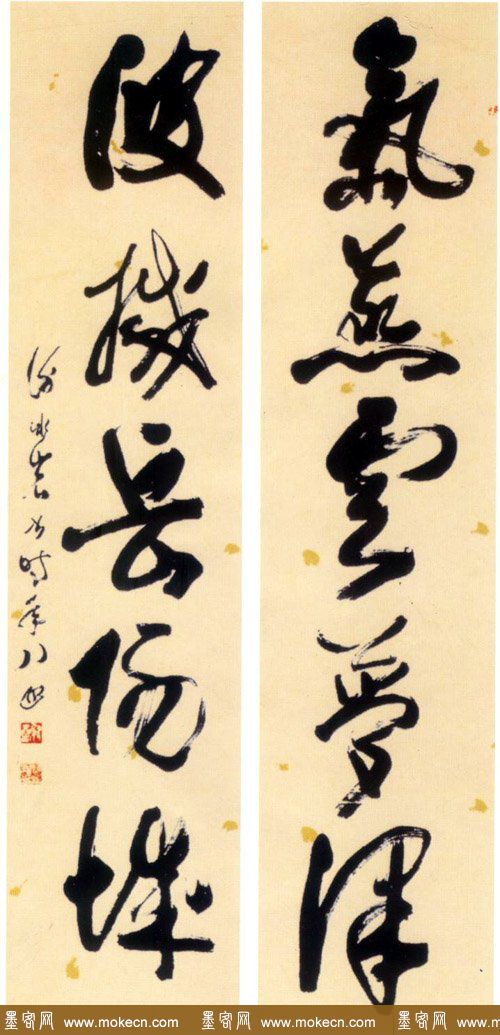 氣蒸雲夢澤
波撼岳陽城
時年八
墨客网 www.mokecn.com 墨客网 www.mokecn.com 墨客网 www.mokecn.com